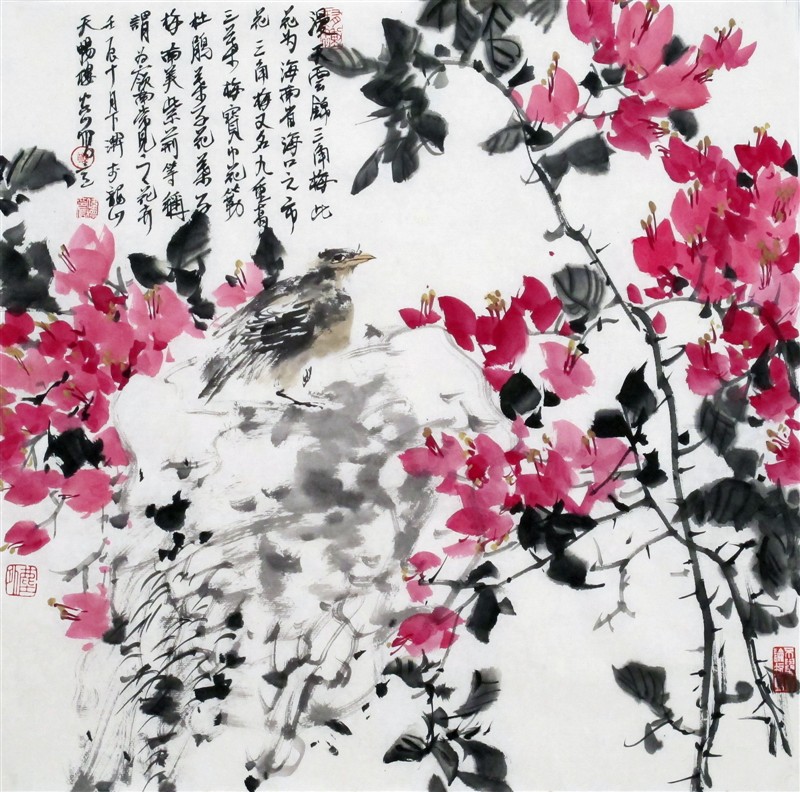 漫天雲錦三角梅此
花为海南省海口之市
花三角梅又名九重葛
三葉梅寶巾花簕
杜鵑葉子花葉
梅南美紫荊等稱
謂为嶺南常見之花卉
壬辰十月下澣於龍山
天暢樓